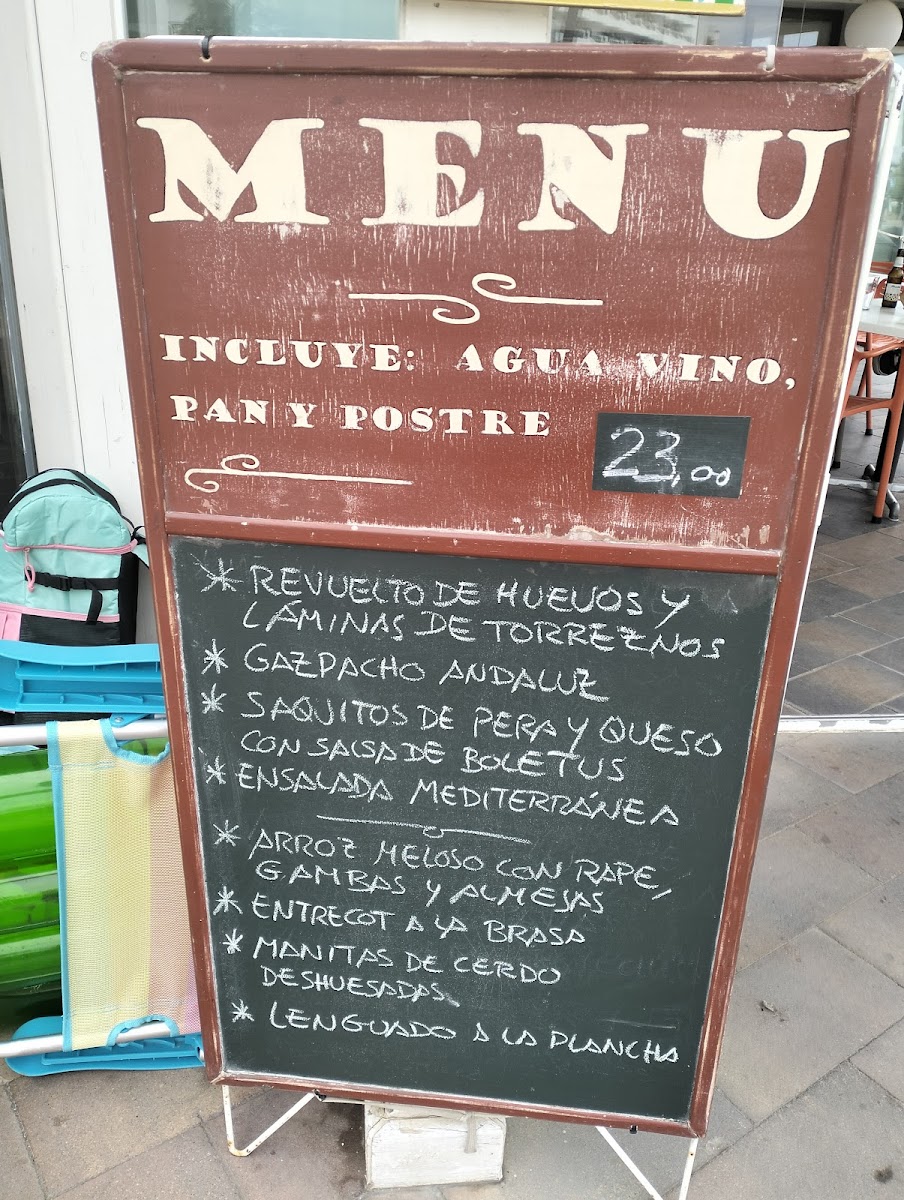 MENU
INCLUYE: AGUA VINO,
PAN Y POSTRE
23,00
* REVUELTO DE HUEVOS Y
LÁMINAS DE TORREZNOS
* GAZPACHO ANDALUZ
* SAQUITOS DE PERA Y QUESO
CON SALSA DE BOLETUS
* ENSALADA MEDITERRÁNEA
* ARROZ MELOSO CON RAPE,
GAMBAS Y ALMEJAS
* ENTRECOT A LA BRASA
* MANITAS DE CERDO
DESHUESADAS
* LENGUADO A LA PLANCHA